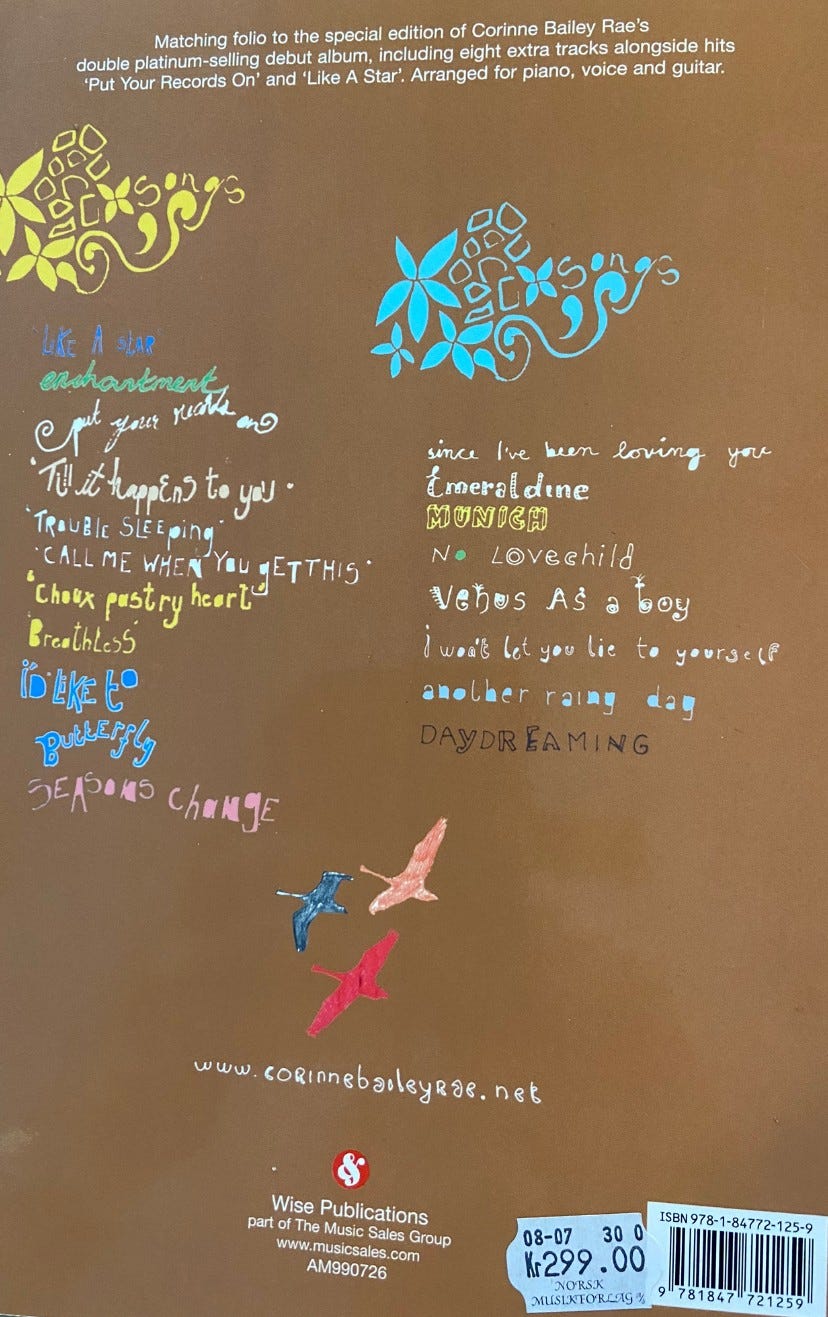 Matching folio to the special edition of Corinne Bailey Rae's
double platinum-selling debut album, including eight extra tracks alongside hits
'Put Your Records On' and 'Like A Star'. Arranged for piano, voice and guitar.
songs
'LIKE A STAR'
enchantment
put your records on
'Till it happens to you'
'TROUBLE SLEEPing'
'CALL ME WHEN YOU gET THIS'
'Choux pastry heart'
'Breathless'
i'D LIKE to
Butterfly
SEASONS ChaNgE
songs
since I've been loving you
Emeraldine
MUNICH
No LOVEchild
Venus As a boy
i won't let you lie to yourself
another rainy day
DAYDREAMING
www.corinnebaileyrae.net
&
Wise Publications
part of The Music Sales Group
www.musicsales.com
AM990726
08-07 30 0
Kr299.00
NORSK
MUSIKFORLAG A/S
ISBN 978-1-84772-125-9
9 781847 721259